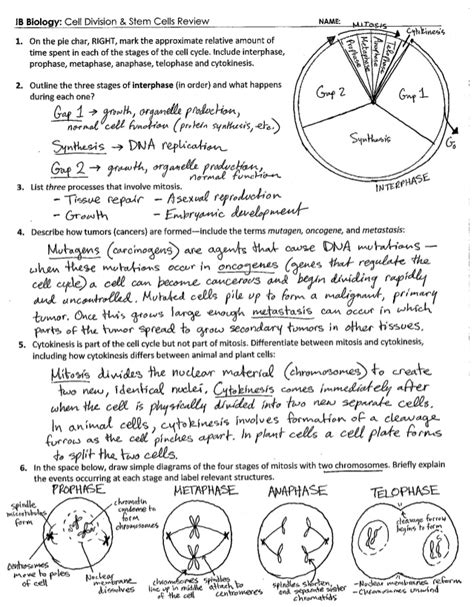 IB Biology: Cell Division & Stem Cells Review NAME:
MITOSIS
Cytokinesis
Prophase
Metaphase
Anaphase
Telophase
1. On the pie char, RIGHT, mark the approximate relative amount of
time spent in each of the stages of the cell cycle. Include interphase,
prophase, metaphase, anaphase, telophase and cytokinesis.
Gap 2
Gap 1
Synthesis
G₀
INTERPHASE
2. Outline the three stages of interphase (in order) and what happens
during each one?
Gap 1 → growth, organelle production,
normal cell function (protein synthesis, etc.)
Synthesis → DNA replication
Gap 2 → growth, organelle production,
normal function
3. List three processes that involve mitosis.
- Tissue repair - Asexual reproduction
- Growth - Embryonic development
4. Describe how tumors (cancers) are formed—include the terms mutagen, oncogene, and metastasis:
Mutagens (carcinogens) are agents that cause DNA mutations —
when these mutations occur in oncogenes (genes that regulate the
cell cycle) a cell can become cancerous and begin dividing rapidly
and uncontrolled. Mutated cells pile up to form a malignant, primary
tumor. Once this grows large enough metastasis can occur in which
parts of the tumor spread to grow secondary tumors in other tissues.
5. Cytokinesis is part of the cell cycle but not part of mitosis. Differentiate between mitosis and cytokinesis,
including how cytokinesis differs between animal and plant cells:
Mitosis divides the nuclear material (chromosomes) to create
two new, identical nuclei. Cytokinesis comes immediately after
when the cell is physically divided into two new separate cells.
In animal cells, cytokinesis involves formation of a cleavage
furrow as the cell pinches apart. In plant cells a cell plate forms
to split the two cells.
6. In the space below, draw simple diagrams of the four stages of mitosis with two chromosomes. Briefly explain
the events occurring at each stage and label relevant structures.
PROPHASE METAPHASE ANAPHASE TELOPHASE
spindle
microtubules
form
chromatin
condense to
form
chromosomes
centrosomes
move to poles
of cell
Nuclear
membrane
dissolves
chromosomes
line up in middle
of the cell
spindles
attach to
centromeres
spindles shorten,
and separate sister
chromatids
cleavage furrow
begins to form
-Nuclear membranes reform
-Chromosomes unwind